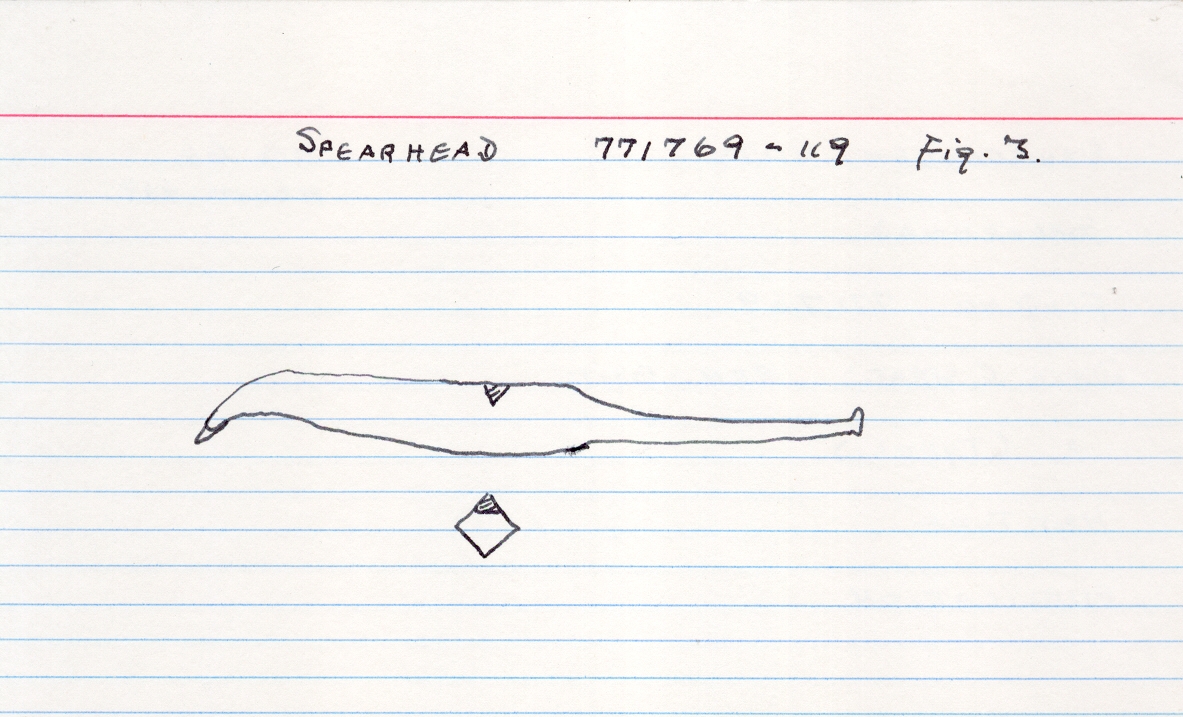 SPEARHEAD 771769-119 Fig. 3.